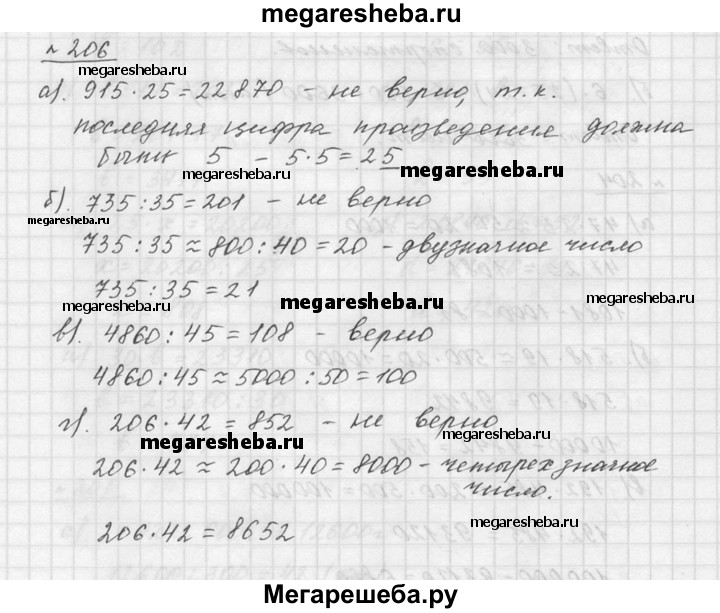 megaresheba.ru
№ 206
megaresheba.ru
а). 915·25=22870 - не верно, т.к.
последняя цифра произведения должна
быть 5 - 5·5=25
megaresheba.ru megaresheba.ru
б). 735:35=201 - не верно
megaresheba.ru
735:35≈800:40=20 - двузначное число
735:35=21
megaresheba.ru megaresheba.ru megaresheba.ru
в). 4860:45=108 - верно
4860:45≈5000:50=100
г). 206·42=852 - не верно
megaresheba.ru megaresheba.ru
206·42≈200·40=8000 - четырехзначное
число.
206·42=8652
megaresheba.ru
Мегарешеба.ру